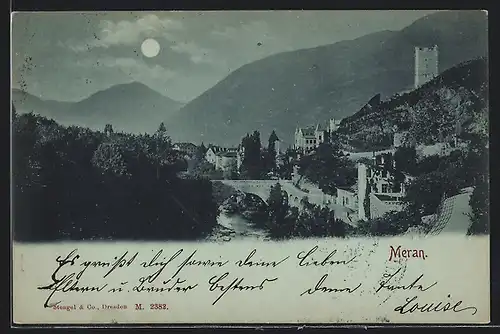 Meran.
Es grüßt dich sowie deine lieben
Eltern u Bruder bestens deine Tante
Louise
Stengel & Co., Dresden M. 2383.